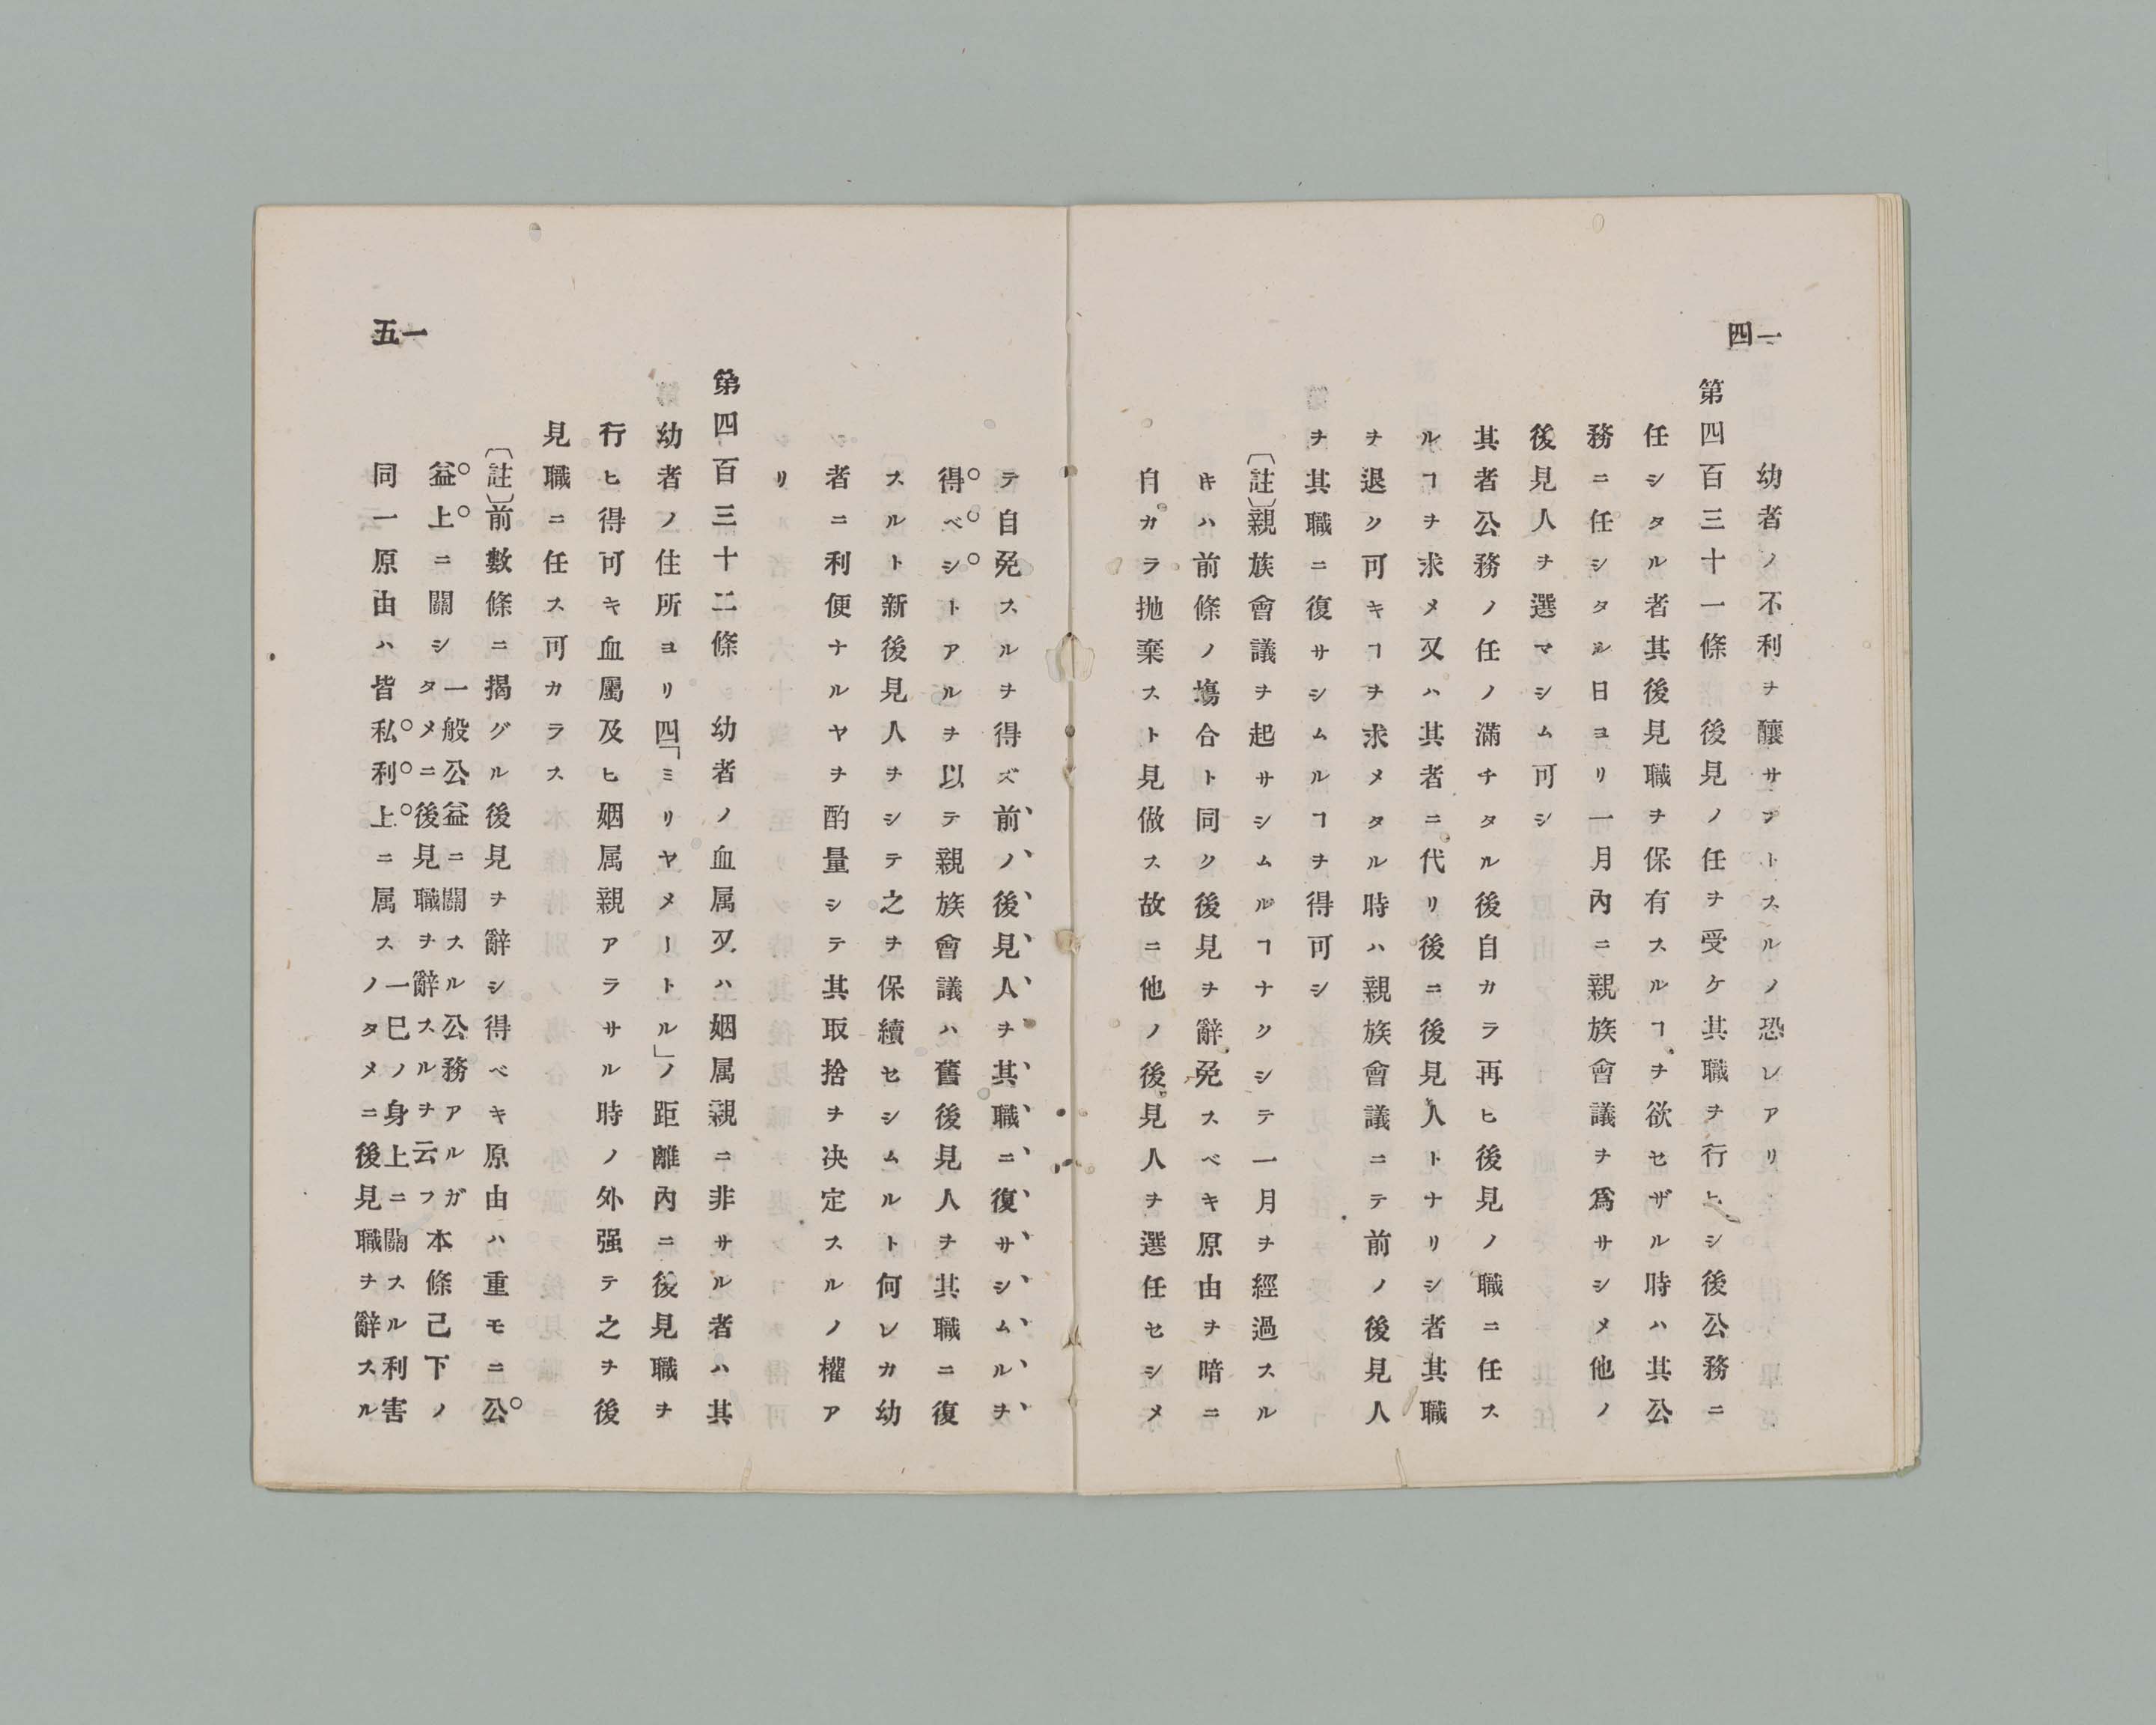 一四
幼者ノ不利ヲ釀サントスルノ恐レアリ
第四百三十一條　後見ノ任ヲ受ケ其職ヲ行ヒシ後公務ニ
任シタル者其後見職ヲ保有スルヿヲ欲セザル時ハ其公
務ニ任シタル日ヨリ一月內ニ親族會議ヲ爲サシメ他ノ
後見人ヲ選マシム可シ
其者公務ノ任ノ滿チタル後自カラ再ヒ後見ノ職ニ任ス
ルヿヲ求メ又ハ其者ニ代リ後ニ後見人トナリシ者其職
ヲ退ク可キヿヲ求メタル時ハ親族會議ニテ前ノ後見人
ヲ其職ニ復サシムルヿヲ得可シ
〔註〕親族會議ヲ起サシムルヿナクシテ一月ヲ經過スル
トキハ前條ノ塲合ト同ク後見ヲ辭免スベキ原由ヲ暗ニ
自カラ抛棄スト見做ス故ニ他ノ後見人ヲ選任セシメ
一五
テ自免スルヲ得ズ前ノ後見人ヲ其職ニ復サシムルヲ
得ベシトアルヲ以テ親族會議ハ舊後見人ヲ其職ニ復
スルト新後見人ヲシテ之ヲ保續セシムルト何レカ幼
者ニ利便ナルヤヲ酌量シテ其取捨ヲ决定スルノ權ア
リ
第四百三十二條　幼者ノ血属又ハ姻属親ニ非サル者ハ其
幼者ノ住所ヨリ四「ミリヤメートル」ノ距離內ニ後見職ヲ
行ヒ得可キ血屬及ヒ姻属親アラサル時ノ外强テ之ヲ後
見職ニ任ス可カラス
〔註〕前數條ニ揭グル後見ヲ辭シ得ベキ原由ハ重モニ公
益上ニ關シ
一般公益ニ關スル公務アルガ
タメニ後見職ヲ辭スルヲ云フ
本條己下ノ
同一原由ハ皆私利上ニ属ス
一己ノ身上ニ關スル利害
ノタメニ後見職ヲ辭スル